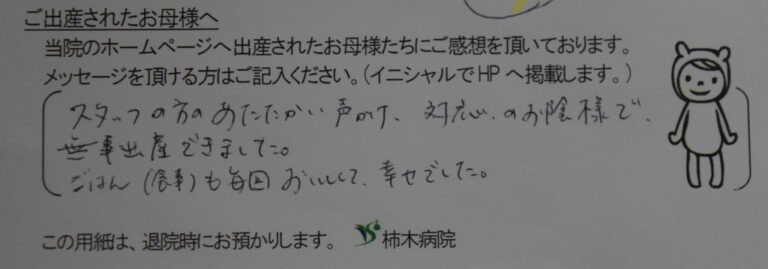 ご出産されたお母様へ
当院のホームページへ出産されたお母様たちにご感想を頂いております。
メッセージを頂ける方はご記入ください。(イニシャルでHPへ掲載します。)
スタッフの方のあたたかい声かけ、対応のお陰様で、
無事出産できました。
ごはん(食事)も毎回おいしくて、幸せでした。
この用紙は、退院時にお預かりします。 柿木病院